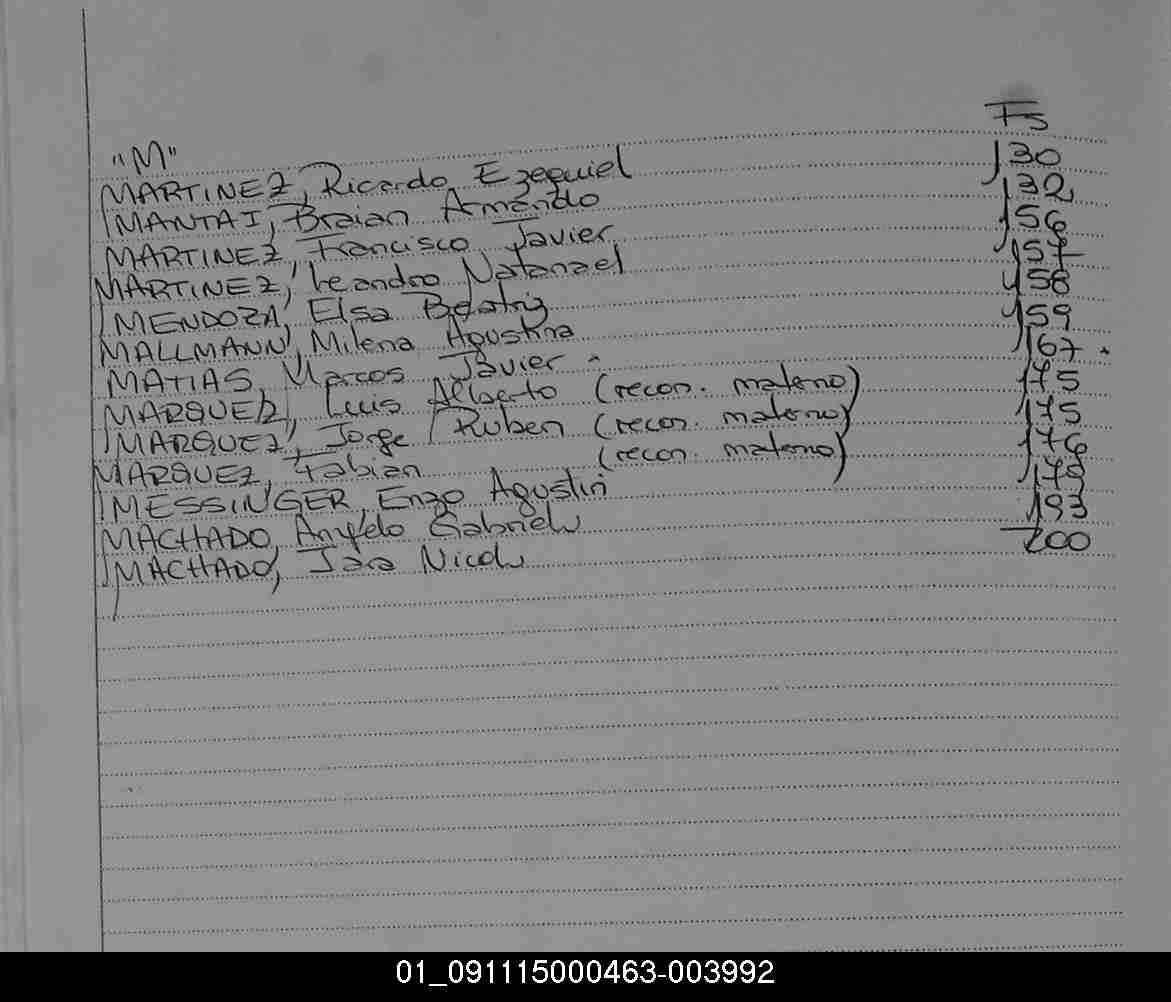 "M" Fs
MARTINEZ, Ricardo Ezequiel 130
MANTAI, Braian Armando 132
MARTINEZ, Francisco Javier 156
MARTINEZ, Leandro Natanael 157
MENDOZA, Elsa Beatriz 158
MALLMANN, Milena Agustina 159
MATIAS, Marcos Javier 167
MARQUEZ, Luis Alberto (recon. materno) 175
MARQUEZ, Jorge Ruben (recon. materno) 175
MARQUEZ, Fabian (recon. materno) 176
MESSINGER, Enzo Agustin
MACHADO, Angelo Gabriel 193
MACHADO, Nicol 200
01_091115000463-003992